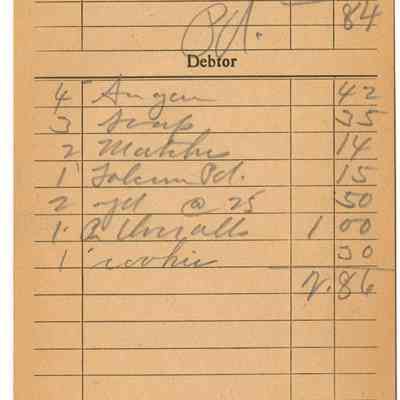 84
Pd.
Debtor
4 Sugar 42
3 Soap 35
2 Matches 14
1 Pd. 15
2 yd @ 25 50
1 P. Overalls 1 00
1 cookies 30
2.86